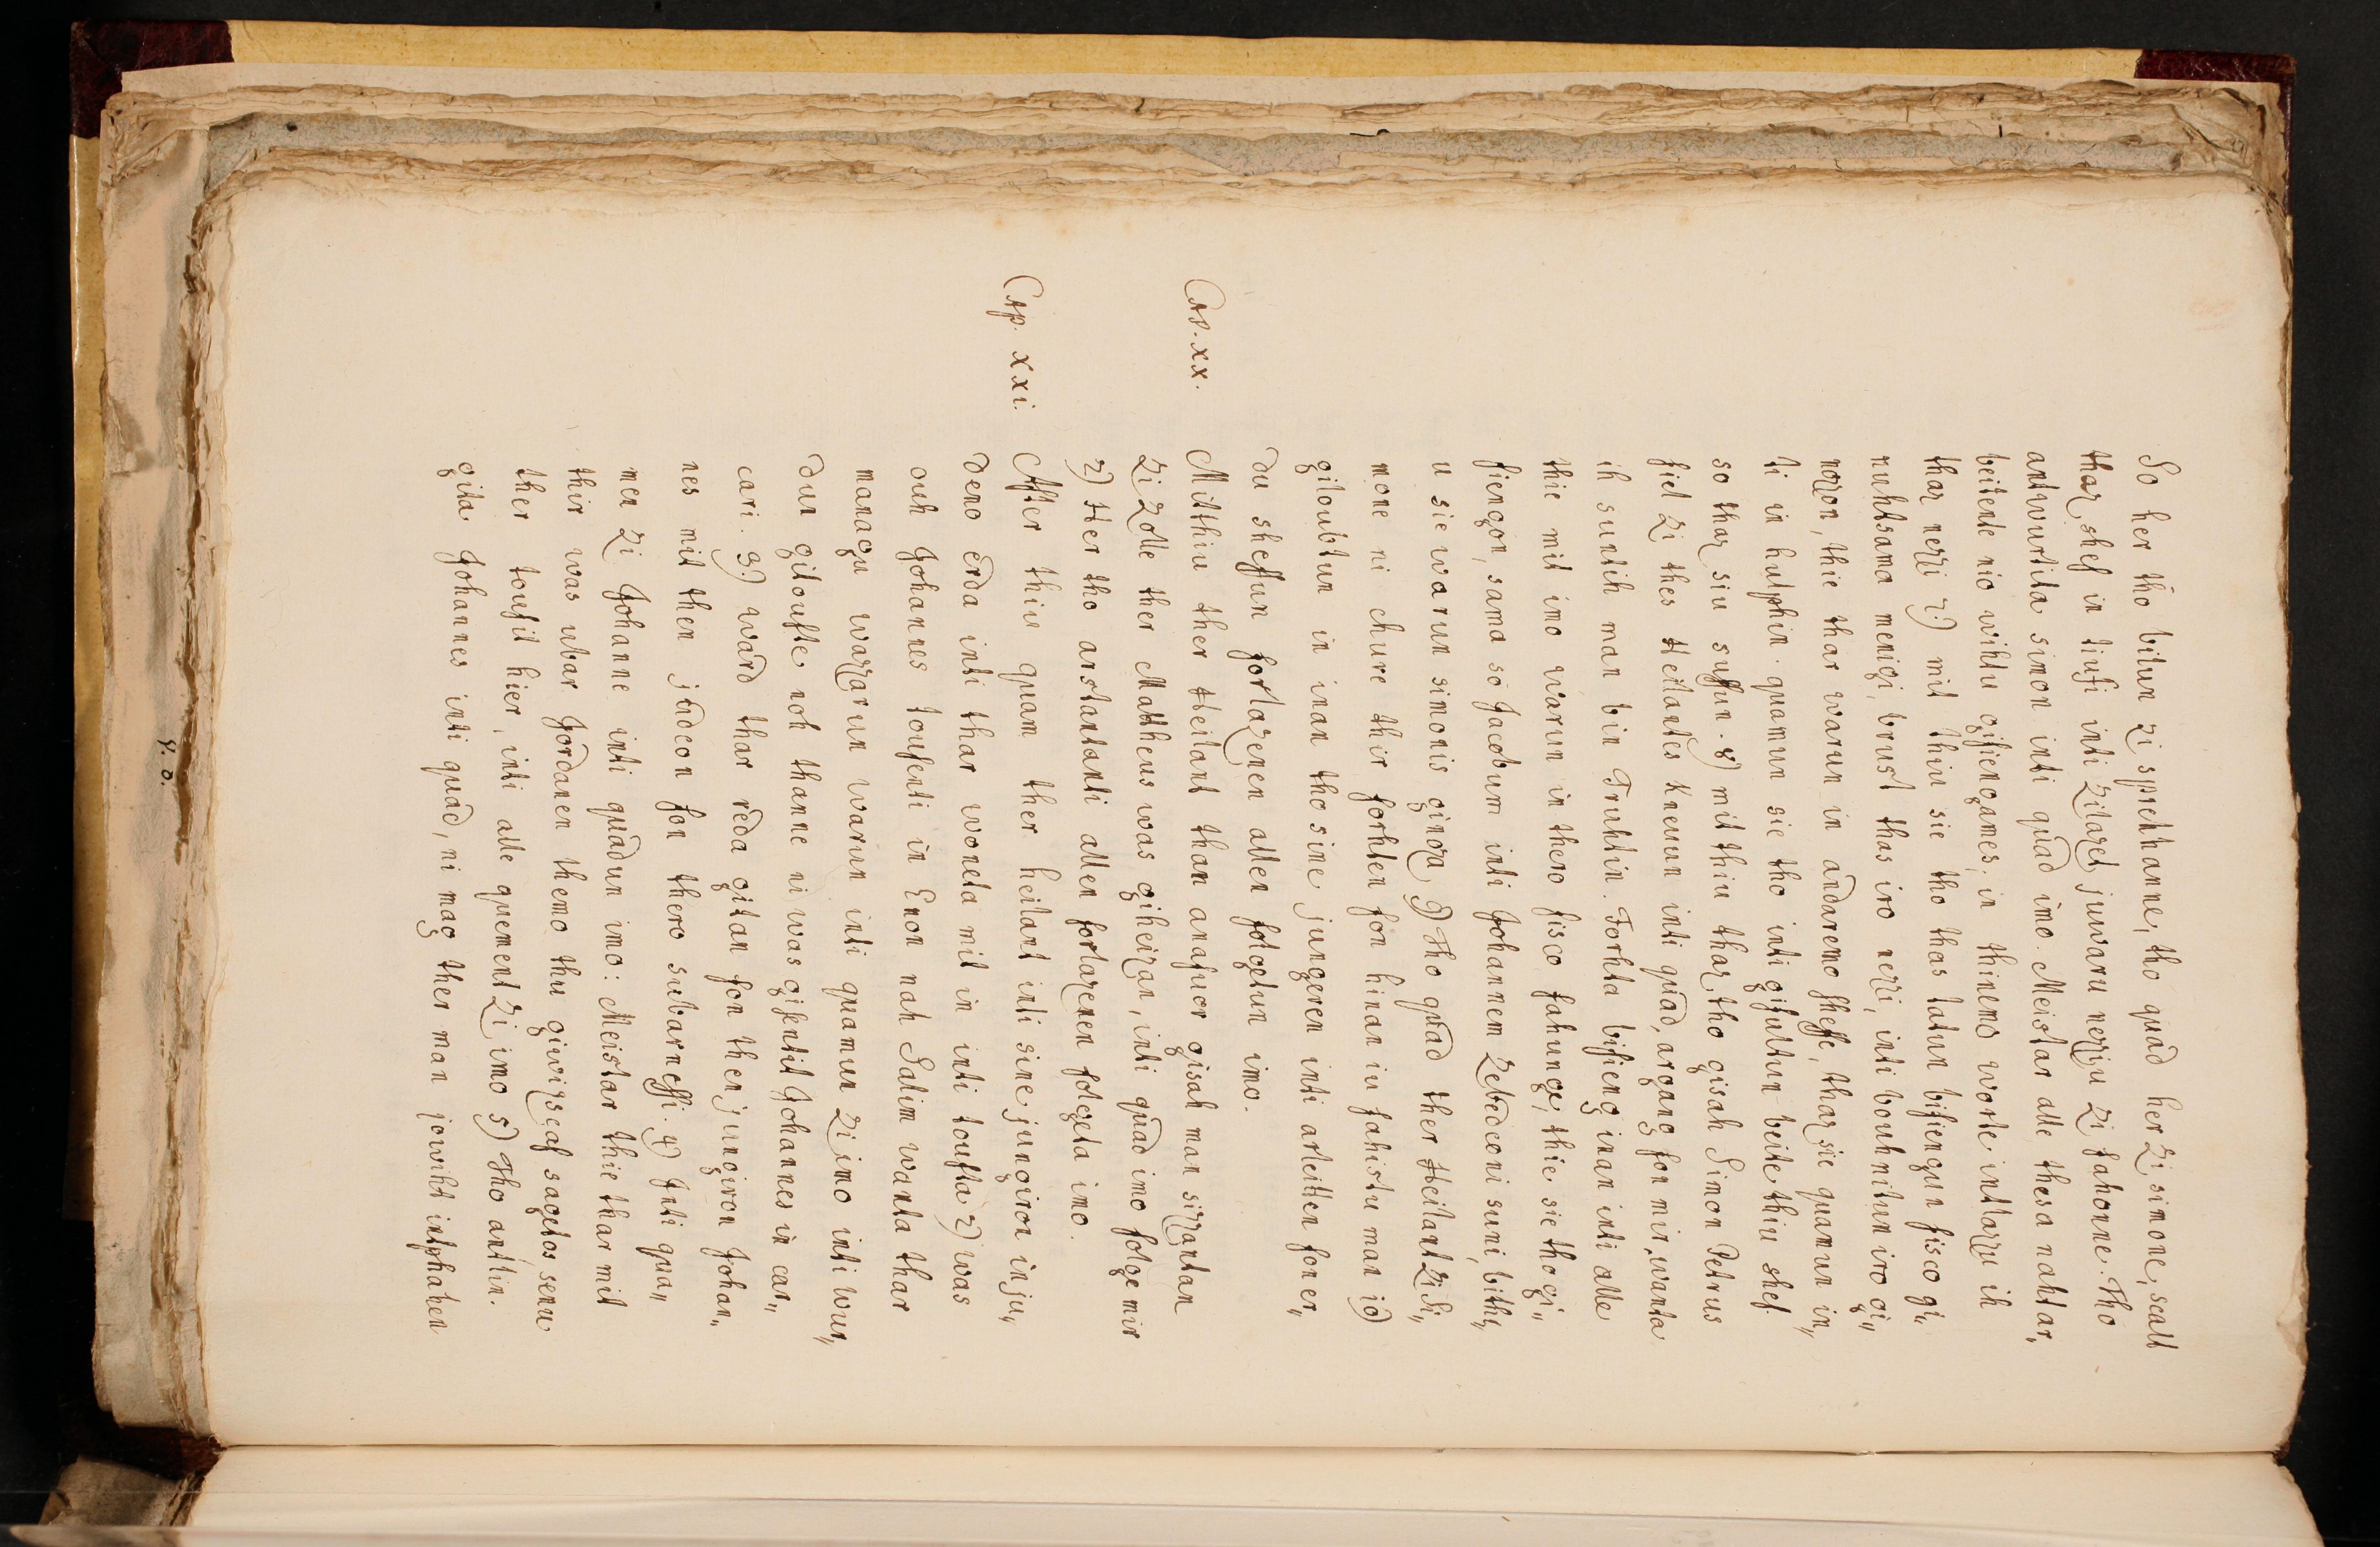 So her tho bilun zi sprehhanne, tho quad her zi simone, scalt
thaz skef in tiufi inti zilazet juwaru nezzu zi fahonne. Tho
antwurtita simon inti quad imo. Meistar alle thesa nahtar„
beitente nio wihtu gifiengames, in thinemo worte intlazu ih
thaz nezzi 7) mit thiu sie tho thas tatun bifiengun fisco gi„
nuhtsama menigi, brust thas iro nezzi, inti bouhnitun iro gi„
nozon, thie thar warun in andaremo skeffe, thaz sie quamun in„
ti in hulphin. quamun sie tho inti gifultun beite thiu skef.
so thaz siu suffun. 8) mit thiu thaz tho gisah Simon Petrus
fiel zi thes Heilantes Kneuun inti quad, argang fon mir, wanta
ih suntih man bin Truhtin. Forhta bifieng inan inti alle
thie mit imo warun in thero fisco fahunge, thie sie tho gi„
fiengon, sama so Jacobum inti Johannem zebedeoni suni, bithi„
u sie warun simonis ginoza 9) Tho quad ther Heilant zi Si„
mone ni chure thir forhten fon hinan iu fahistu man 10)
giloubtun in inan tho sine jungeren inti arleitten fon er„
du skeffun forlazenen allen folgetun imo.
Cap. xx. Mitthiu ther Heilant than anafuor gisah man sizzantan
zi zolle ther Mattheus was giheizan, inti quad imo folge mir
2) Her tho arstantanti allen forlazenen folgeta imo.
Cap. xxi. After thiu quam ther heilant inti sine jungiron in ju„
deno erda inti thar woneta mit in inti toufta 2) was
ouh Johannes toufenti in Enon nah Salim wanta thar
managu wazzarun warun inti quamun zi imo inti wur„
dun giloufte noh thanne ni was gisentit Johannes in car„
cari. 3.) ward thar reda gitan fon then jungiron Johan„
nes mit then judeon fon thero subarneffi. 4) Inti qua„
men zi Johanne inti quadun imo: Meistar thie thar mit
thir was ubar Jordanen themo thu giwizscaf sagetos senu
ther toufit hier, inti alle quement zi imo 5) Tho antlin.
gita Johannes inti quad, ni mag ther man jowiht intphahen